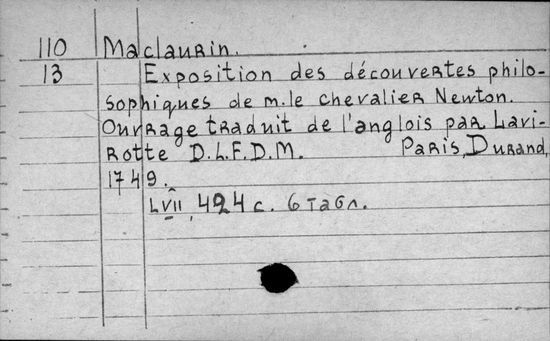 110 Maclaurin.
13 Exposition des découvertes philo-
sophiques de m.le chevalier Newton.
Ouvrage traduit de l'anglois par Lavi-
rotte D.L.F.D.M. Paris, Durand,
1749.
LVII, 424 c. 6 табл.